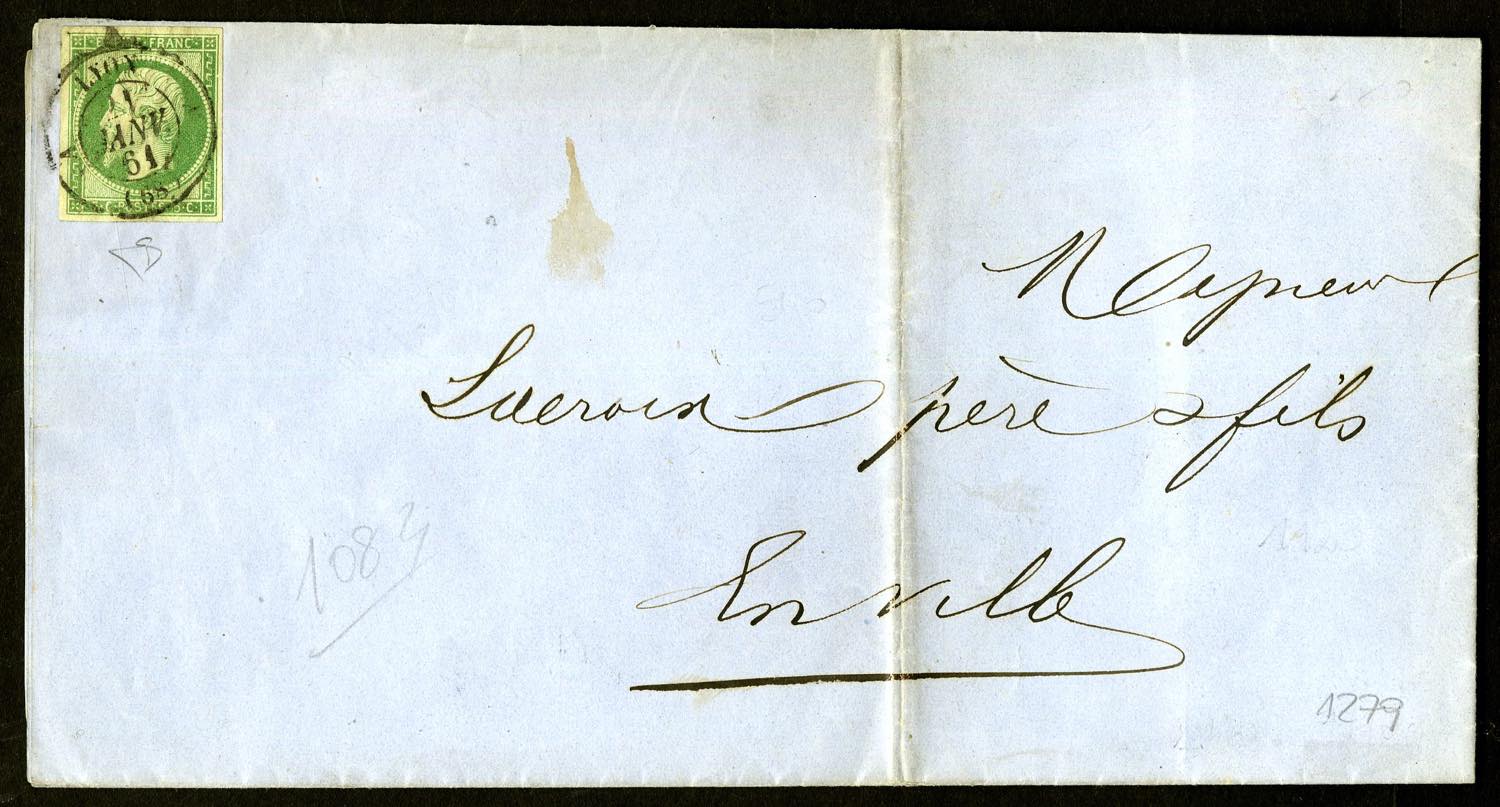 EMPIRE FRANC
LYON
1
JANV
61
(68)
5 C. POSTES 5 C.
Lacroix père & fils
En ville
1083
1279